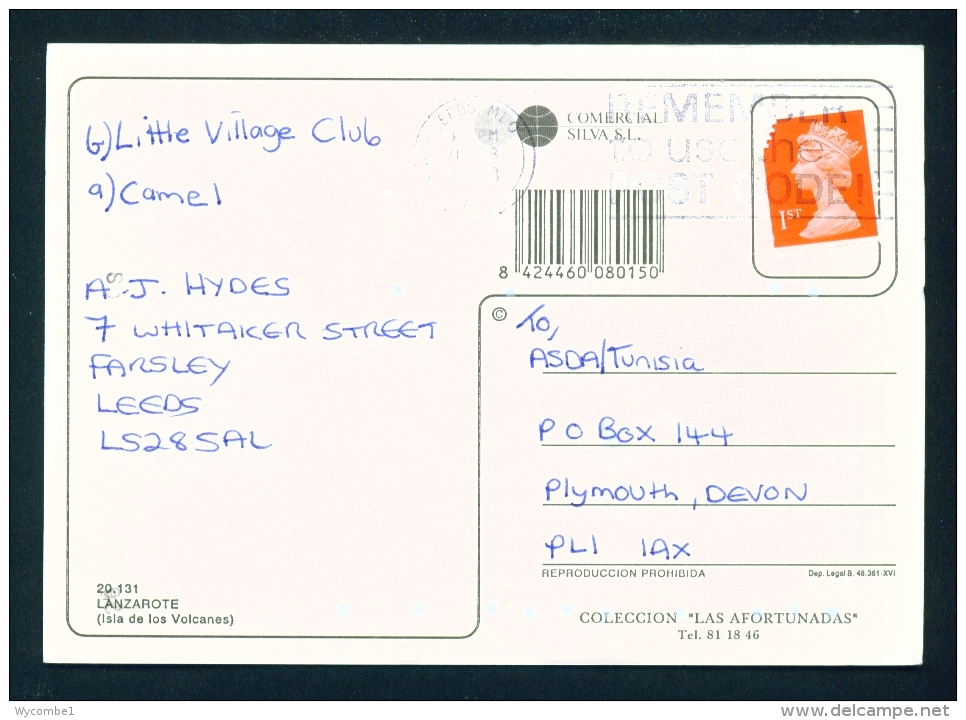 b) Little Village Club
a) Camel
A.J. HYDES
7 WHITAKER STREET
FARSLEY
LEEDS
LS28 5AL
20.131
LANZAROTE
(Isla de los Volcanes)
COMERCIAL
SILVA, S.L.
REMEMBER
to use the
POST CODE!
1ST
8 424460 080150
©
To,
ASDA/Tunisia
P O BOX 144
Plymouth, DEVON
PL1 1AX
REPRODUCCION PROHIBIDA
Dep. Legal B. 46.361-XVI
COLECCION "LAS AFORTUNADAS"
Tel. 81 18 46
Wycombe1
www.delcampe.net